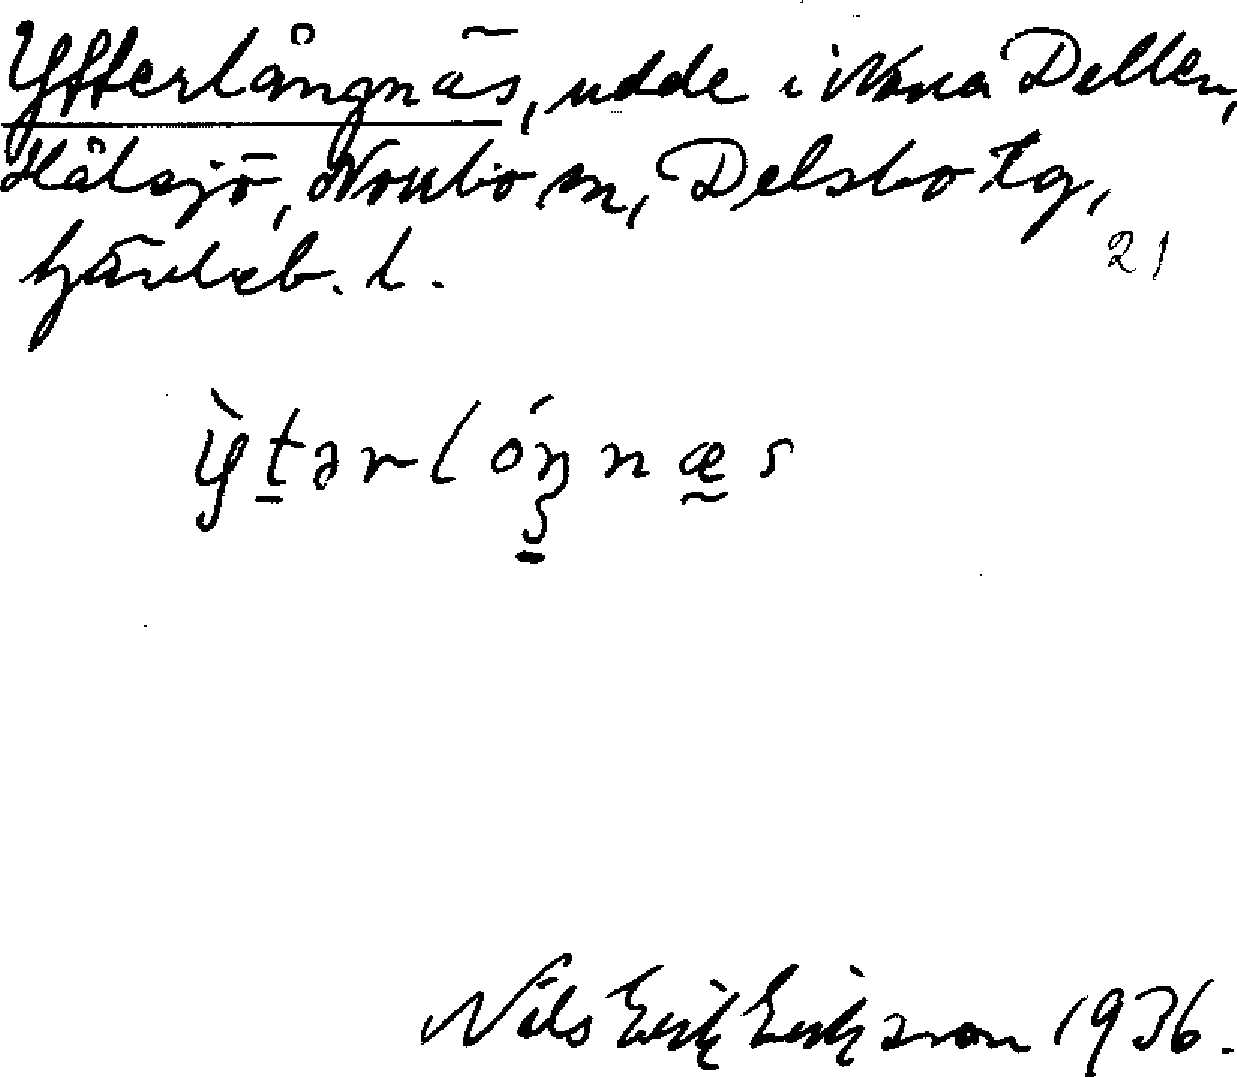 Ytterlångnäs, udde i Norra Dellen,
Hålsjö, Norrbo sn, Delsbo tg,
Gävleb. l.
21
ỳtərlóŋnæs
Nils Erik Eriksson 1936.